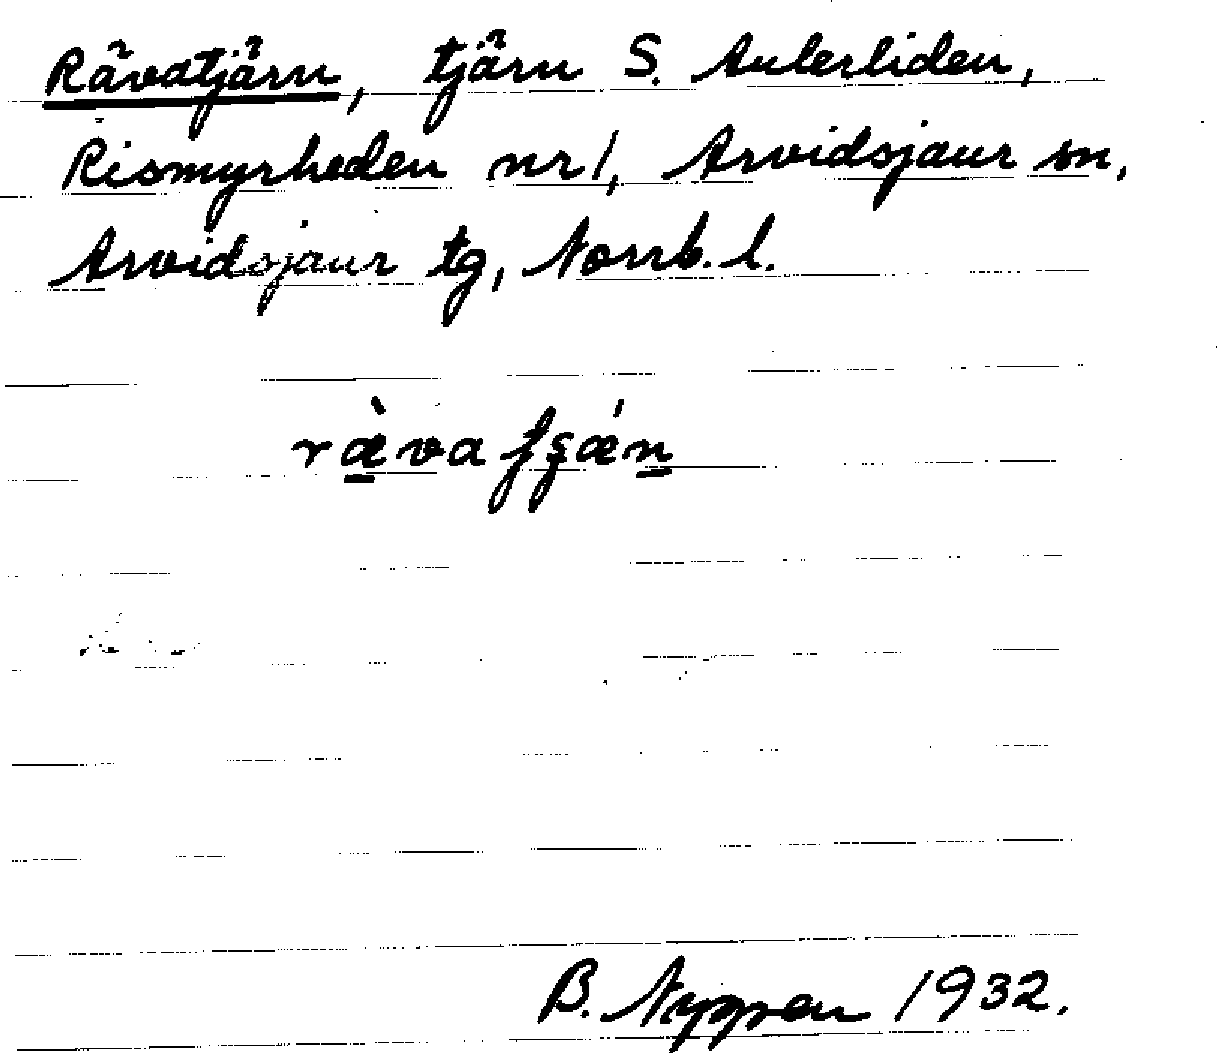 Rävatjärn, tjärn S. Auterliden,
Rismyrheden nr 1, Arvidsjaur sn,
Arvidsjaur tg, Norrb. l.
ræ̀va
B. Nygren 1932.